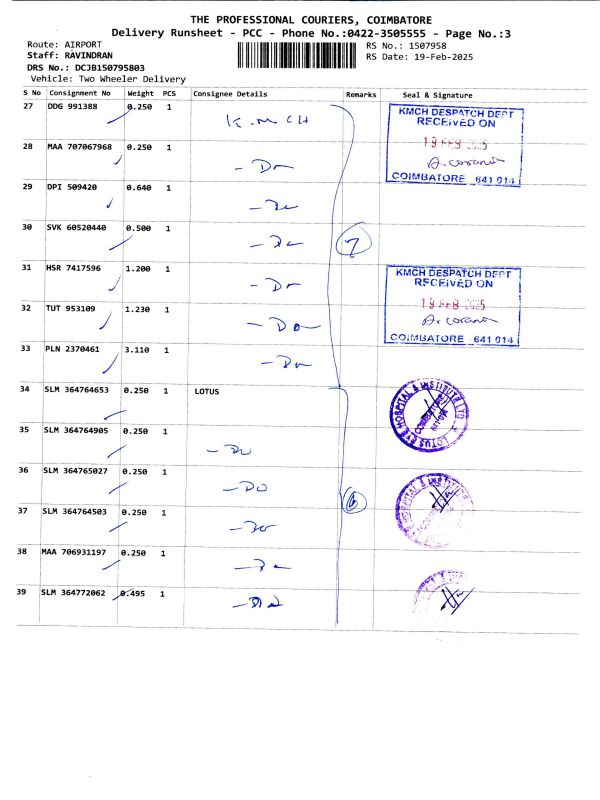 THE PROFESSIONAL COURIERS, COIMBATORE
Delivery Runsheet - PCC - Phone No.:0422-3505555 - Page No.:3
Route: AIRPORT
RS No.: 1507958
Staff: RAVINDRAN
RS Date: 19-Feb-2025
DRS No.: DCJB150795803
Vehicle: Two Wheeler Delivery
S No Consignment No Weight PCS Consignee Details Remarks Seal & Signature
27 DDG 991388 0.250 1 K.M CH
KMCH DESPATCH DEPT
RECEIVED ON
19 FEB 2025
COIMBATORE 641 014
28 MAA 707067968 0.250 1 - Do
29 DPI 509420 0.640 1 - Do
30 SVK 60520440 0.500 1 - Do 7
31 HSR 7417596 1.200 1 - Do
KMCH DESPATCH DEPT
RECEIVED ON
19 FEB 2025
COIMBATORE 641 014
32 TUT 953109 1.230 1 - Do
33 PLN 2370461 3.110 1 - Do
34 SLM 364764653 0.250 1 LOTUS
LOTUS EYE HOSPITAL & INSTITUTE LTD
COIMBATORE
641 014
35 SLM 364764905 0.250 1 - Do
36 SLM 364765027 0.250 1 - Do 6
HOSPITAL & INSTITUTE
37 SLM 364764503 0.250 1 - Do
38 MAA 706931197 0.250 1 - Do
39 SLM 364772062 0.495 1 - Do